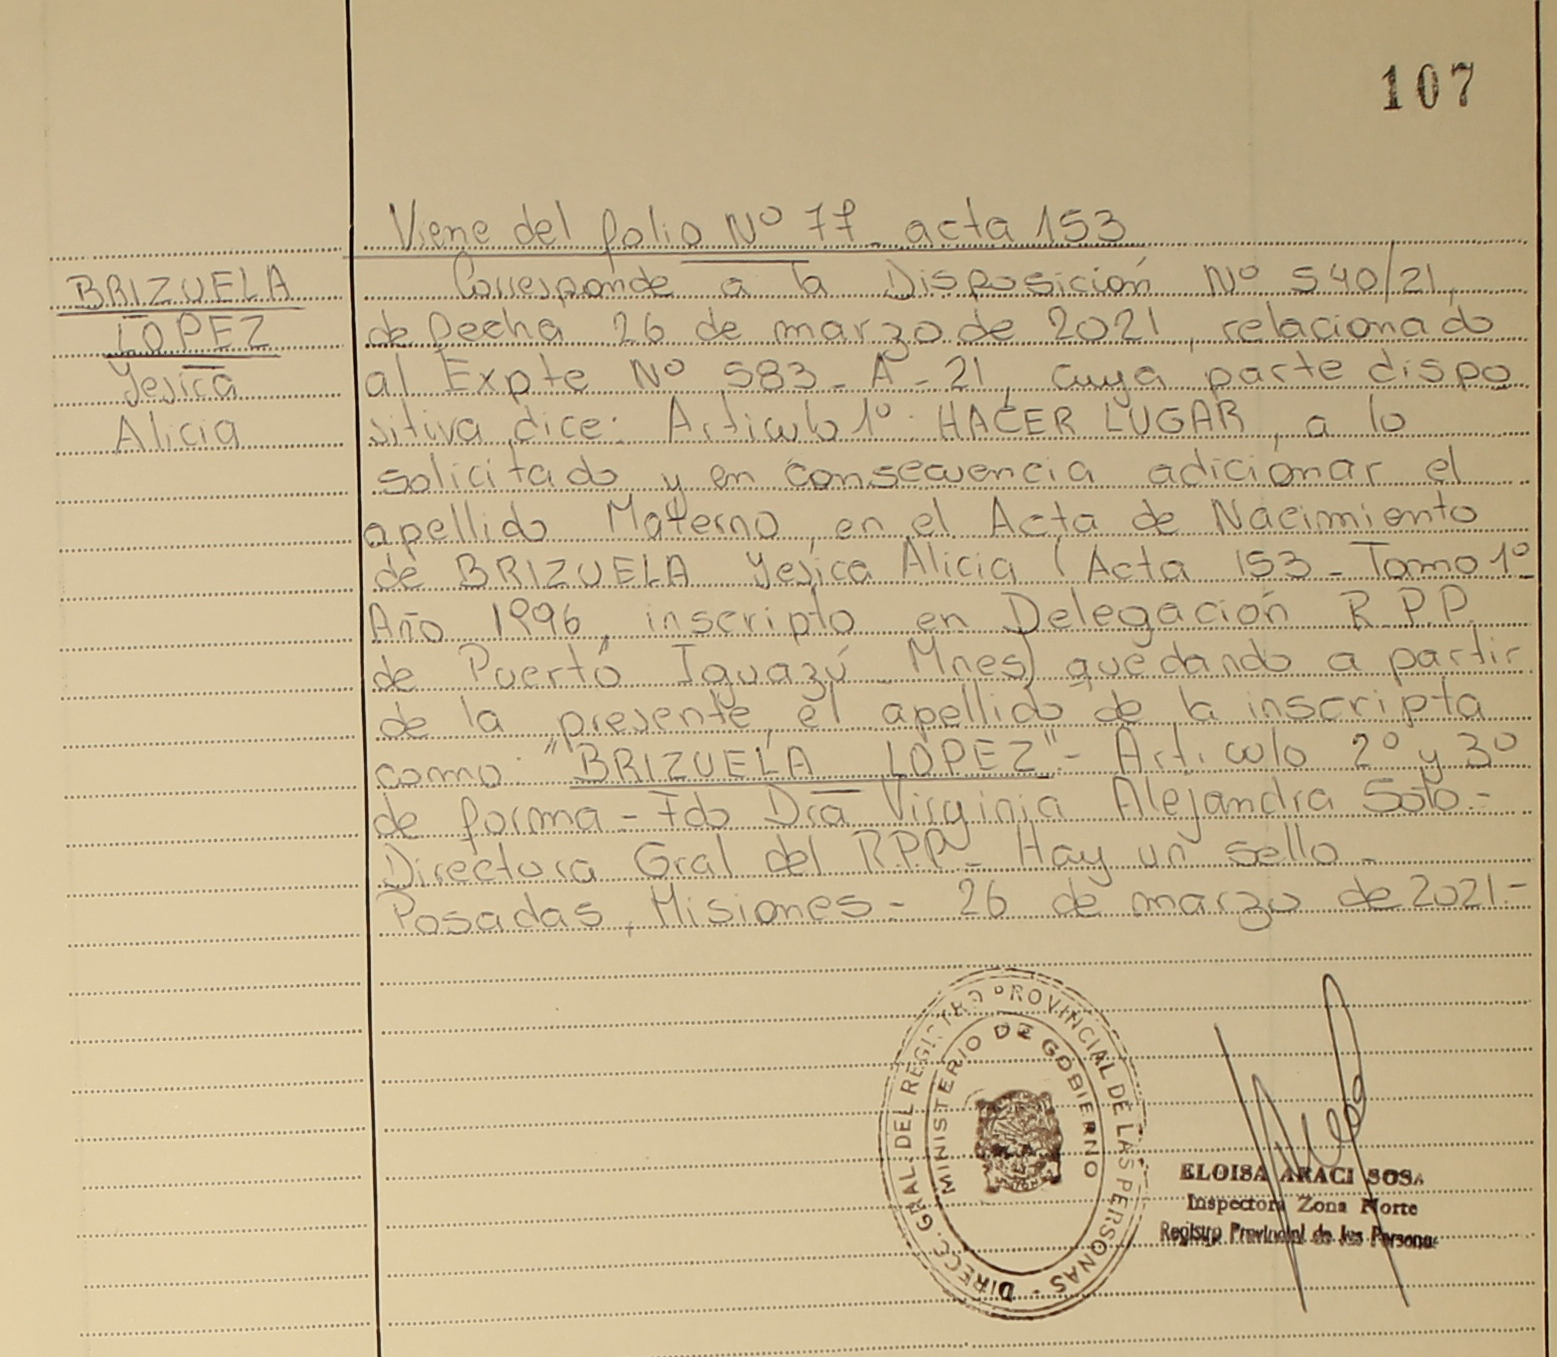 107
Viene del folio Nº 77 - acta 153
BRIZUELA
LOPEZ
Yesica
Alicia
Corresponde a la Disposición Nº 540/21,
de fecha 26 de marzo de 2021, relacionado
al Expte Nº 583 - A - 21, cuya parte dispo
sitiva dice: Articulo 1º: HACER LUGAR, a lo
solicitado y en consecuencia adicionar el
apellido Materno, en el Acta de Nacimiento
de BRIZUELA Yesica Alicia (Acta 153 - Tomo 1º
Año 1996, inscripto en Delegación R.P.P.
de Puerto Iguazú - Mnes) quedando a partir
de la presente, el apellido de la inscripta
como: "BRIZUELA LOPEZ" - Articulo 2º y 3º
de forma - Fdo Dra Virginia Alejandra Soto.-
Directora Gral del R.P.P. - Hay un sello -
Posadas, Misiones - 26 de marzo de 2021.-
DIRECC. GRAL. DEL REGISTRO PROVINCIAL DE LAS PERSONAS -
MINISTERIO DE GOBIERNO
ELOISA ARACI SOSA
Inspectora Zona Norte
Registro Provincial de las Personas